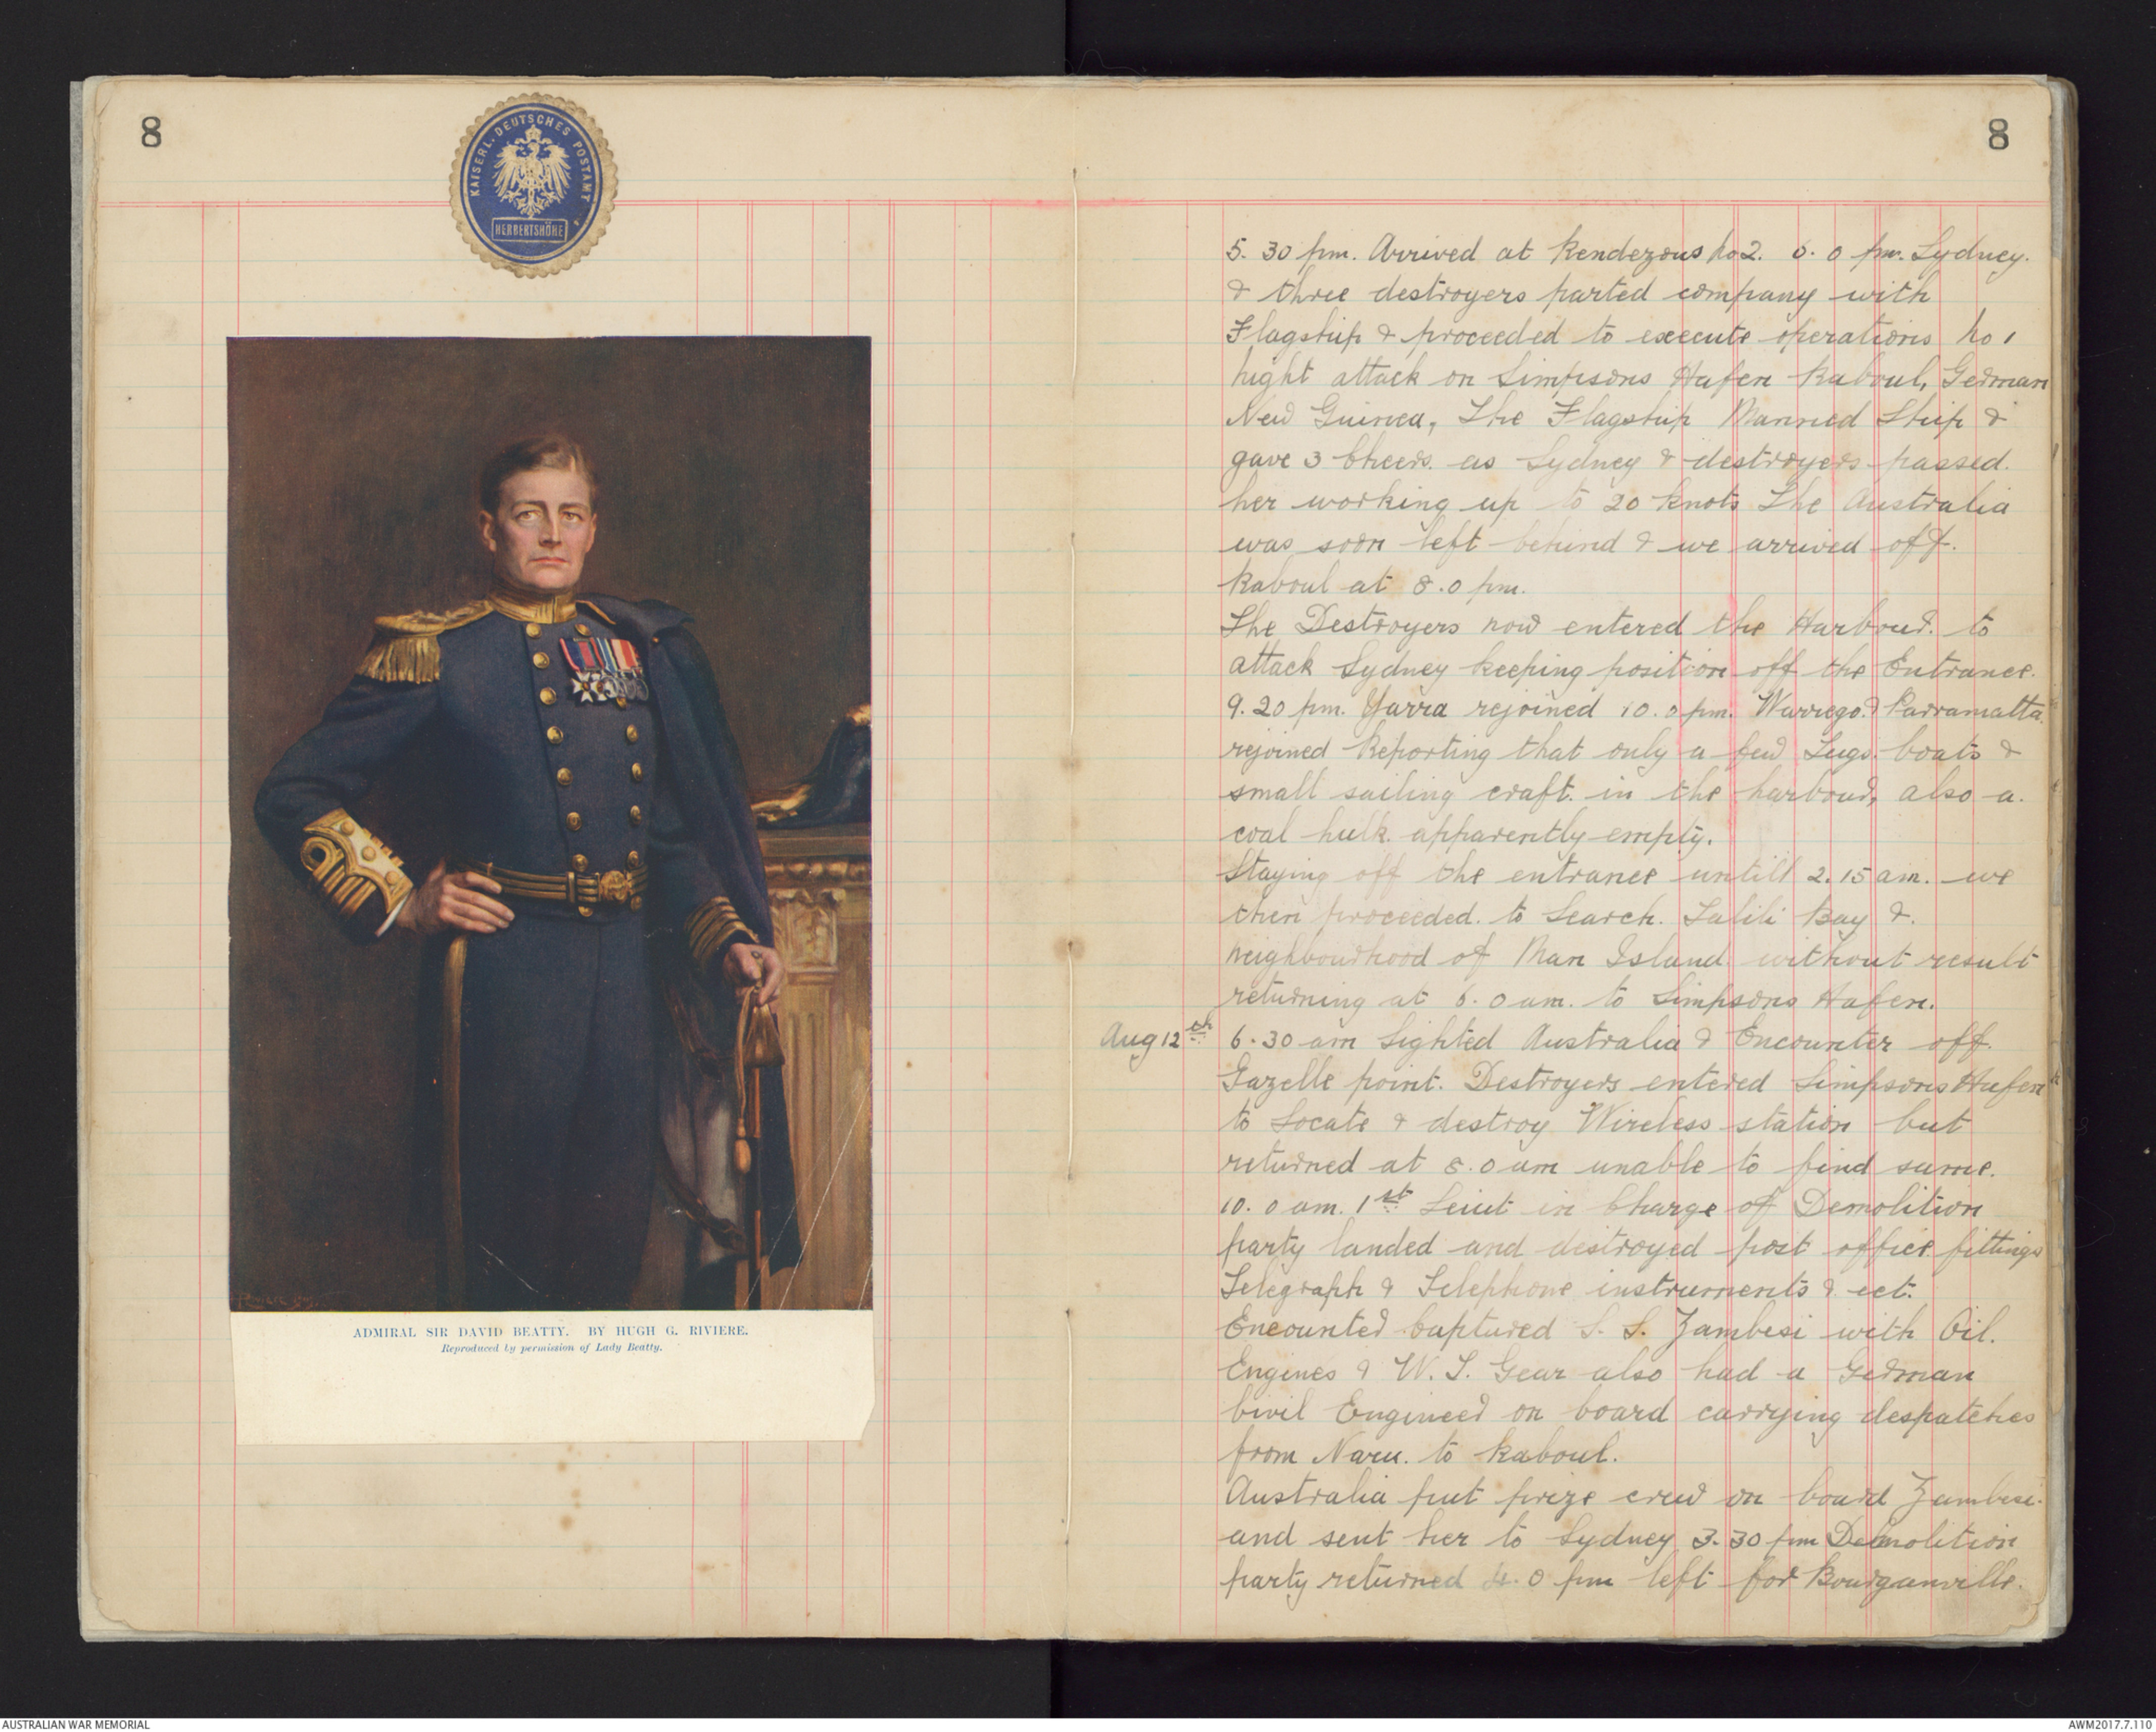 8
KAISERL. DEUTSCHES POSTAMT
HERBERTSHÖHE
ADMIRAL SIR DAVID BEATTY. BY HUGH G. RIVIERE.
Reproduced by permission of Lady Beatty.
8
5. 30 pm. Arrived at Rendezous No 2. 6. 0 pm. Sydney.
& three destroyers parted company with
Flagship & proceeded to execute operations No 1
Night attack on Simpsons Hafen Raboul, German
New Guinea, The Flagship Manned Ship &
gave 3 Cheers. as Sydney & destroyers passed.
her working up to 20 knots The Australia
was soon left behind & we arrived off.
Raboul at 8.0 pm.
The Destroyers now entered the Harbour. to
attack Sydney keeping position off the Entrance.
9. 20 pm. Yarra rejoined 10. 0 pm. Warrego. & Parramatta.
rejoined Reporting that only a few Tugs. boats &
small sailing craft. in the harbour, also a.
coal hulk. apparently empty.
Staying off the entrance untill 2. 15 am. we
then proceeded. to Search. Talili Bay &.
neighbourhood of Man Island without result
returning at 6. 0 am. to Simpsons Hafen.
Aug 12th 6. 30 am Sighted Australia & Encounter off.
Gazelle point. Destroyers entered Simpsons Hafen
to Locate & destroy Wireless station but
returned at 8. 0 am unable to find same.
10. 0 am. 1st Leiut in Charge of Demolition
party landed and destroyed post office fittings
Telegraph & Telephone instruments & ect.
Encounter Captured S. S. Zambesi with Oil.
Engines & W. T. Gear also had a German
Civil Engineer on board carrying despatches
from Naru. to Raboul.
Australia put prize crew on board Zambesi.
and sent her to Sydney 3. 30 pm Demolition
party returned 4. 0 pm left for Bourganville.
AUSTRALIAN WAR MEMORIAL
AWM2017.7.110